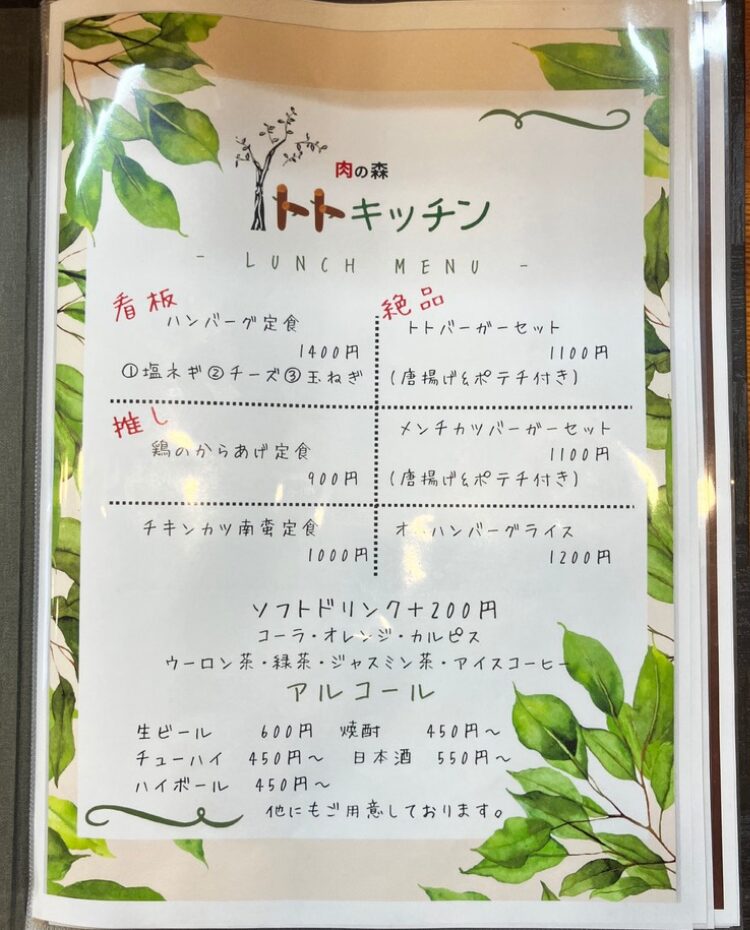 肉の森
トトキッチン
- LUNCH MENU -
看板
ハンバーグ定食
1400円
①塩ネギ②チーズ③玉ねぎ
絶品
トトバーガーセット
1100円
(唐揚げ&ポテチ付き)
推し
鶏のからあげ定食
900円
メンチカツバーガーセット
1100円
(唐揚げ&ポテチ付き)
チキンカツ南蛮定食
1000円
ハンバーグライス
1200円
ソフトドリンク+200円
コーラ・オレンジ・カルピス
ウーロン茶・緑茶・ジャスミン茶・アイスコーヒー
アルコール
生ビール 600円 焼酎 450円～
チューハイ 450円～ 日本酒 550円～
ハイボール 450円～
他にもご用意しております。